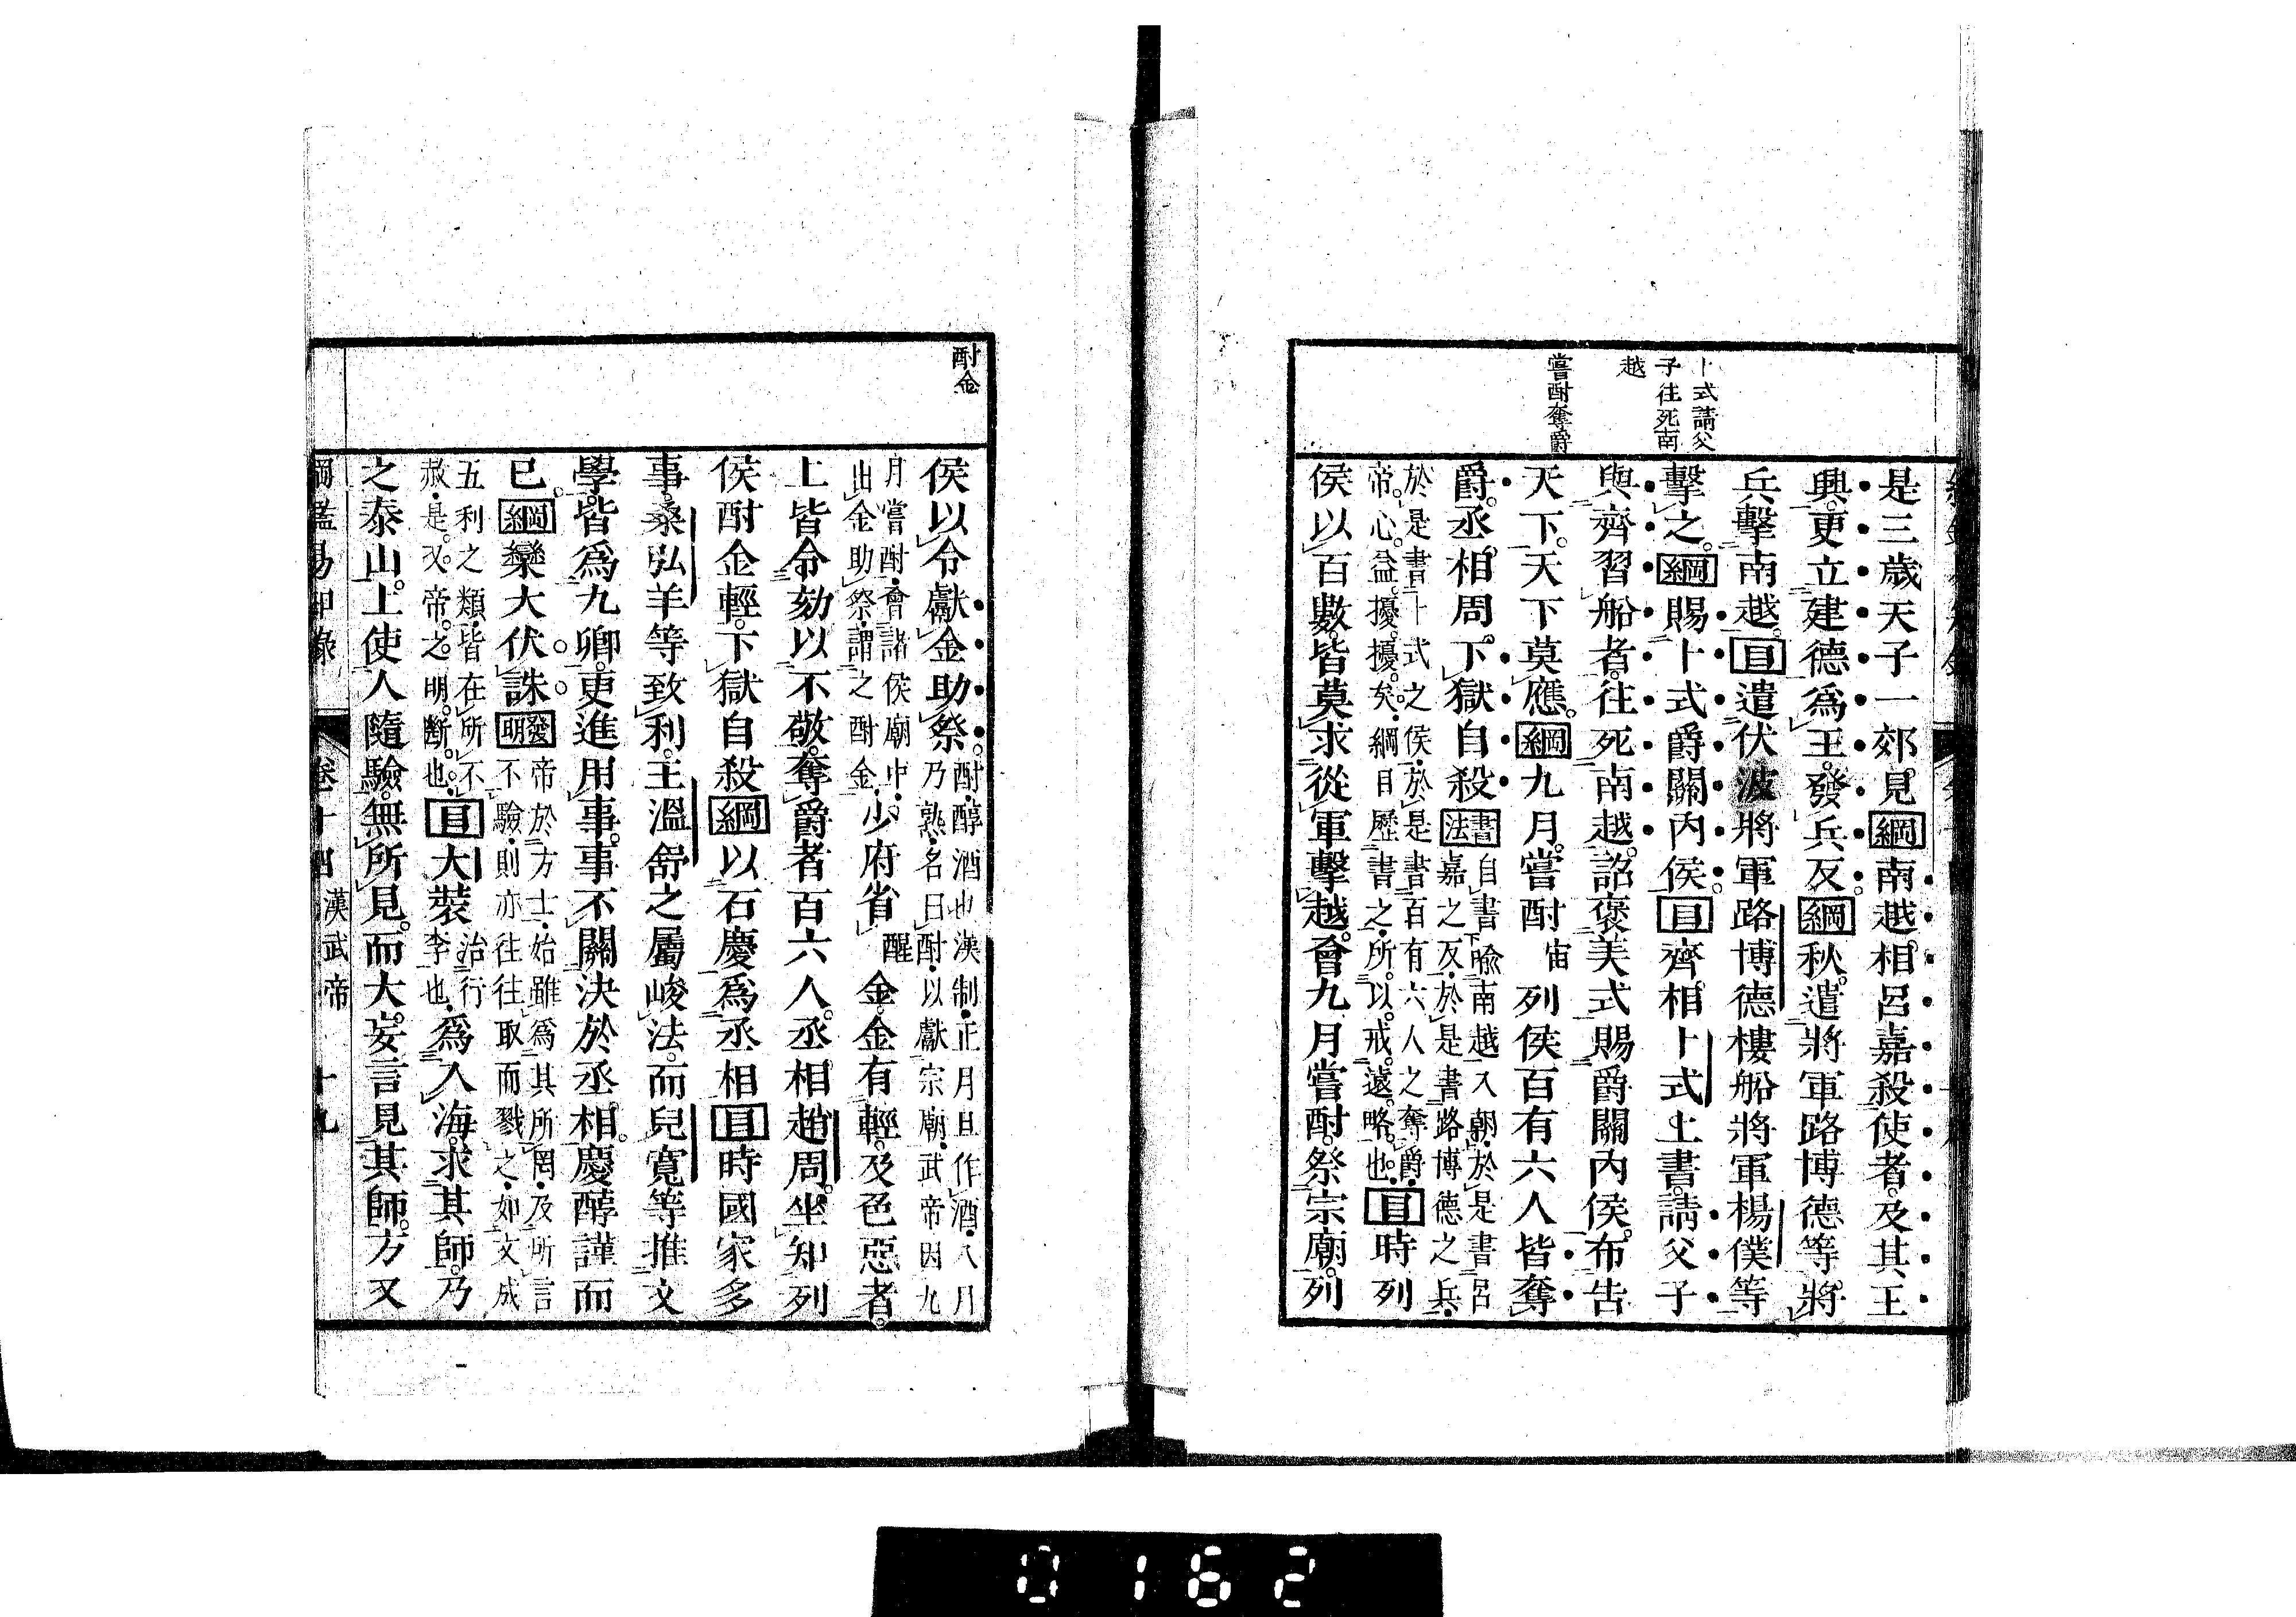 卜式請父
子往死南
越
嘗酎奪爵
是三歲天子一郊見綱南越相呂嘉殺使者及其王
興更立建德爲王發兵反綱秋遣將軍路博德等將
兵擊南越目遣伏波將軍路博德樓船將軍楊僕等
擊之綱賜卜式爵關內侯目齊相卜式上書請父子
與齊習船者往死南越詔褒美式賜爵關內侯布告
天下天下莫應綱九月嘗酎宙列侯百有六人皆奪
爵丞相周下獄自殺書法自書喩南越入朝於是書呂
嘉之反於是書路博德之兵
於是書卜式之侯於是書百有六人之奪爵
帝心益擾擾矣綱目歷書之所以戒遠略也目時列
侯以百數皆莫求從軍擊越會九月嘗酎祭宗廟列
酎金
侯以令獻金助祭酎醇酒也漢制正月旦作酒八月
乃熟名曰酎以獻宗廟武帝因九
月嘗酎會諸侯廟中
出金助祭謂之酎金少府省醒金金有輕及色惡者
上皆令劾以不敬奪爵者百六人丞相趙周坐知列
侯酎金輕下獄自殺綱以石慶爲丞相目時國家多
事桑弘羊等致利王溫舒之屬峻法而兒寬等推文
學皆爲九卿更進用事事不關決於丞相慶醇謹而
已綱欒大伏誅發明帝於方士始雖爲其所罔及所言
不驗則亦往往取而戮之如文成
五利之類皆在所不
赦是又帝之明斷也目大裝治行李也爲入海求其師乃
之泰山上使人隨驗無所見而大妄言見其師方又
綱鑑易知錄 卷十四 漢武帝 十九
0162